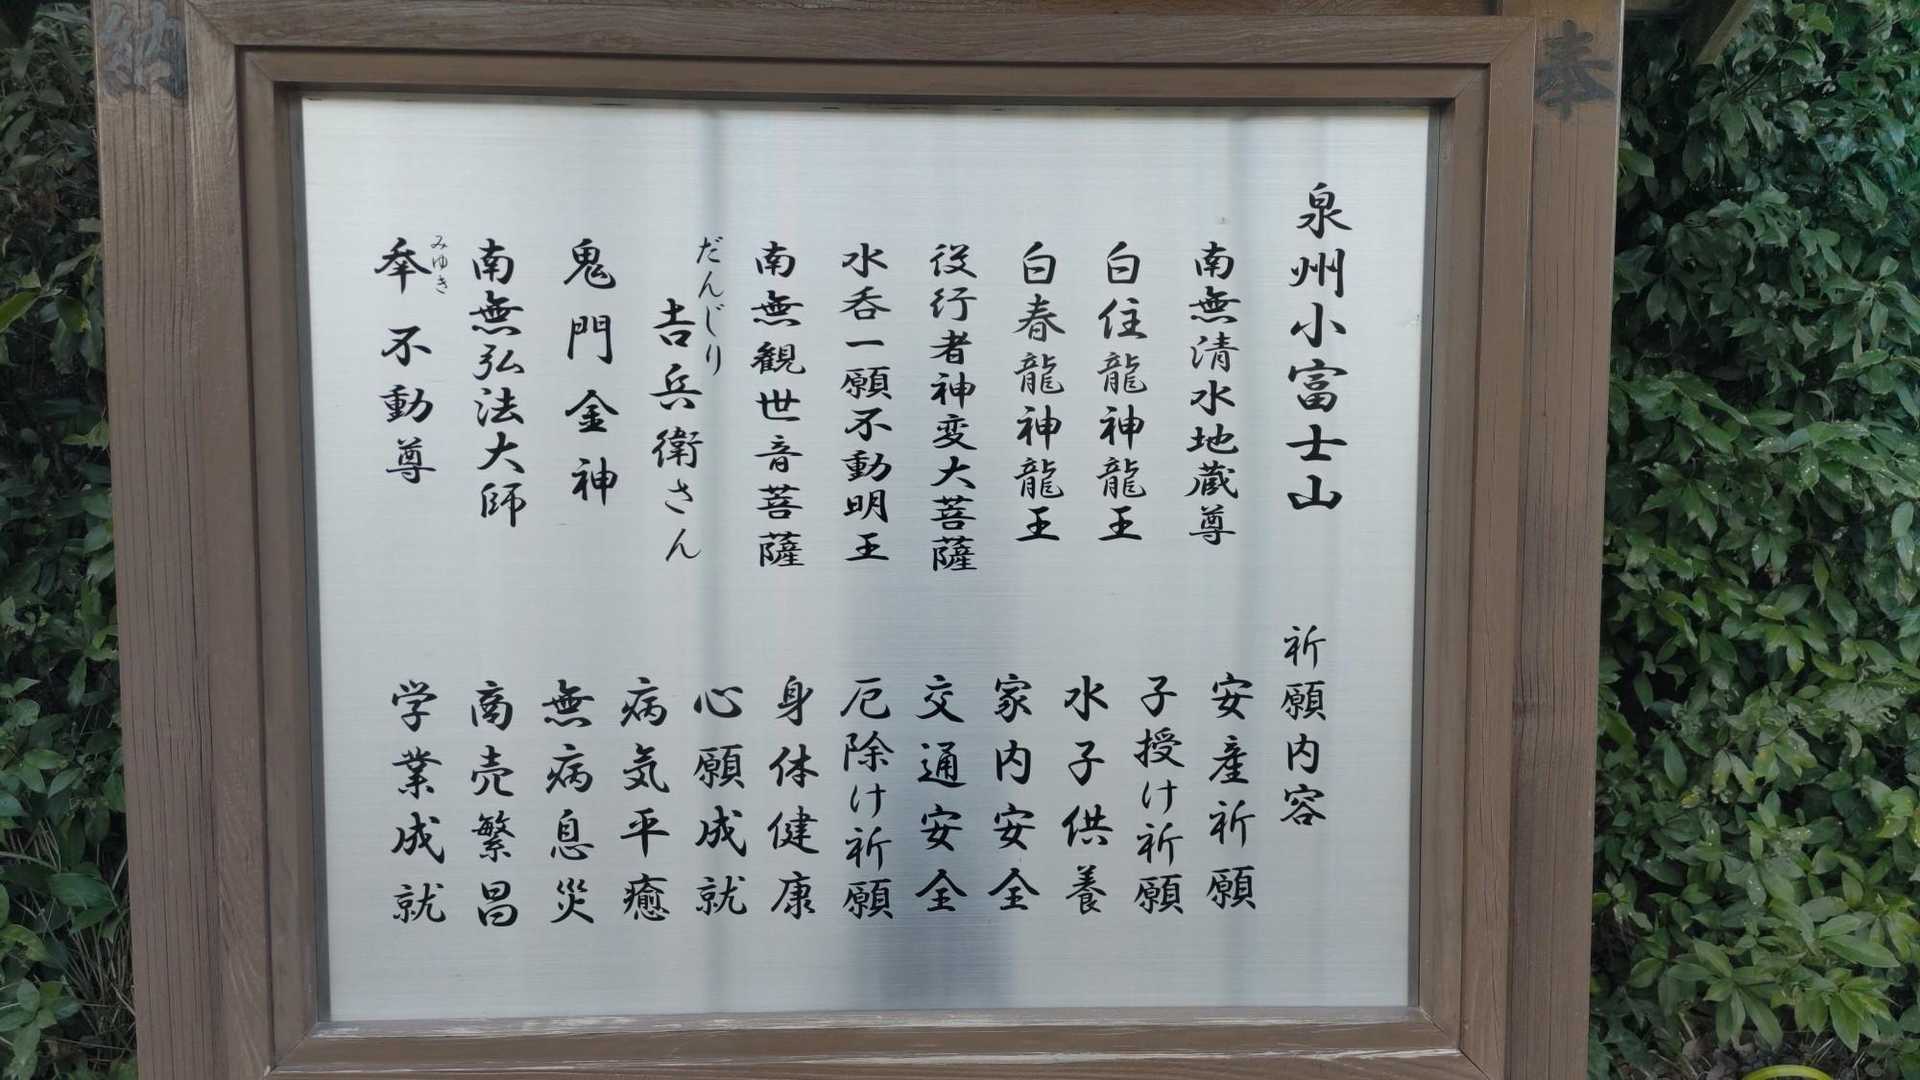 奉
納
泉州小富士山
南無清水地蔵尊
白住龍神龍王
白春龍神龍王
役行者神変大菩薩
水呑一願不動明王
南無観世音菩薩
だんじり
吉兵衛さん
鬼門金神
南無弘法大師
みゆき
夆不動尊
祈願内容
安産祈願
子授け祈願
水子供養
家内安全
交通安全
厄除け祈願
身体健康
心願成就
病気平癒
無病息災
商売繁昌
学業成就